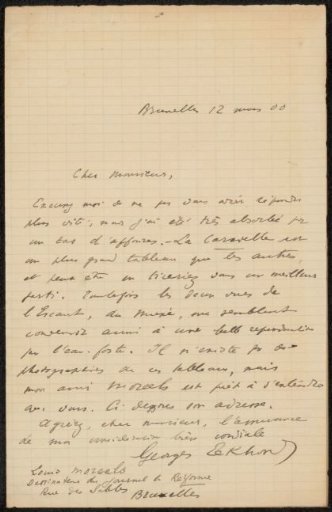 Bruxelles 12 mars 00
Cher Monsieur,
Excusez moi de ne pas vous avoir répondu
plus vite, mais j'ai été très absorbé par
un tas d'affaires. La Caravelle est
un plus grand tableau que les autres,
et peut être en tireriez vous un meilleur
parti. Toutefois les deux vues de
l'Escaut, au Musée, me semblent
convenir aussi à une belle reproduction
par l'eau-forte. Il n'existe pas de
photographies de ces tableaux, mais
mon ami est prêt à s'entendre
avec vous. Ci-dessous son adresse.
Agréez, cher monsieur, l'assurance
de ma considération bien cordiale
Georges Eekhoud
Louis
Dessinateur du Journal la Réforme
Rue des Sables
Bruxelles